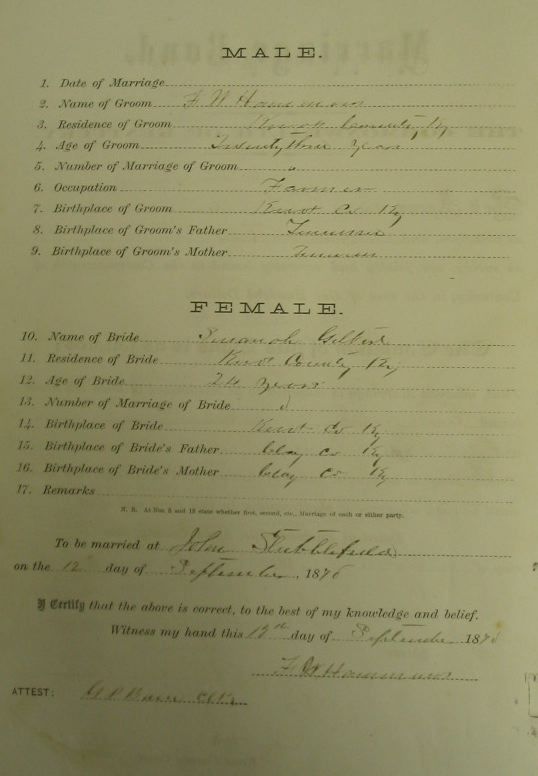 MALE.
1. Date of Marriage
2. Name of Groom F. W Hammons
3. Residence of Groom County Ky
4. Age of Groom Twenty three years
5. Number of Marriage of Groom
6. Occupation Farmer
7. Birthplace of Groom Co Ky
8. Birthplace of Groom's Father
9. Birthplace of Groom's Mother
FEMALE.
10. Name of Bride
11. Residence of Bride County Ky
12. Age of Bride 24 years
13. Number of Marriage of Bride
14. Birthplace of Bride Co Ky
15. Birthplace of Bride's Father Clay Co Ky
16. Birthplace of Bride's Mother Clay Co Ky
17. Remarks
N. B. At Nos 5 and 13 state whether first, second, etc., Marriage of each or either party.
To be married at John Stubblefields
on the 12 day of September, 1876
I Certify that the above is correct, to the best of my knowledge and belief.
Witness my hand this 12th day of September 187
F W Hammons
ATTEST: Clk